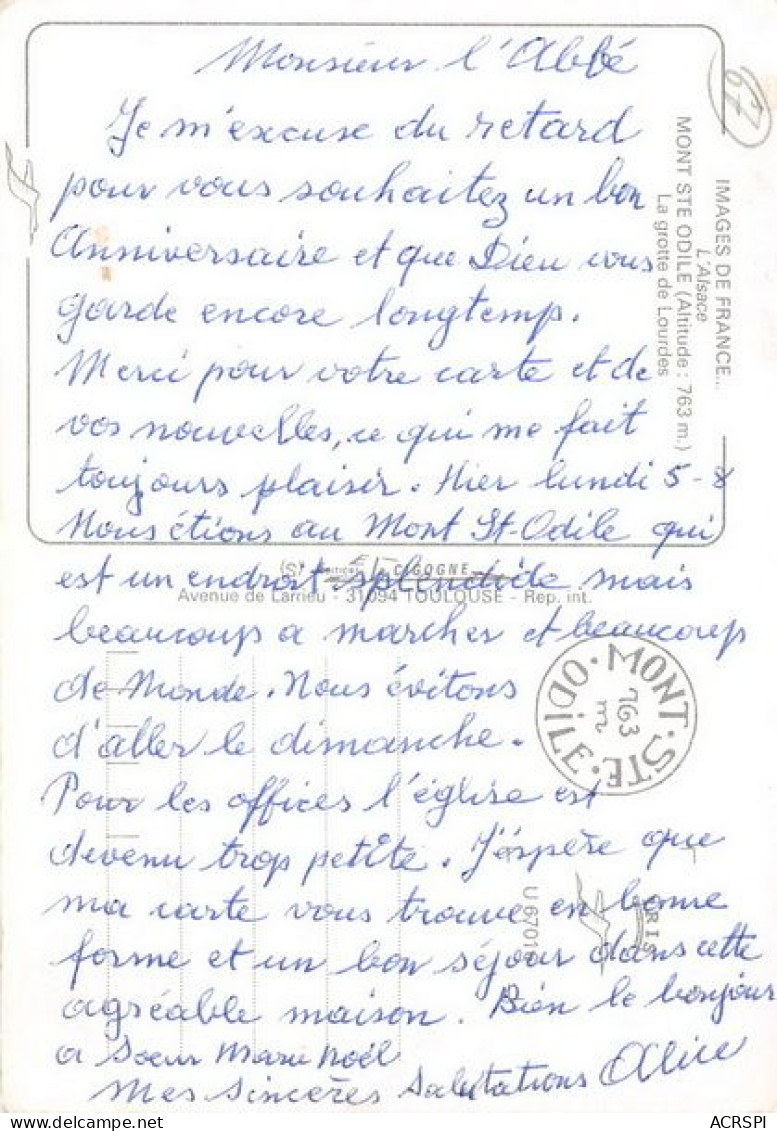 Monsieur l'Abbé
Je m'excuse du retard
pour vous souhaitez un bon
Anniversaire et que Dieu vous
garde encore longtemp.
Merci pour votre carte et de
vos nouvelles, ce qui me fait
toujours plaisir. Hier lundi 5-8
Nous étions au Mont St-Odile qui
est un endroit splendide mais
beaucoup a marcher et beaucoup
de Monde. Nous évitons
d'aller le dimanche.
Pour les offices l'église est
devenu trop petite. J'éspère que
ma carte vous trouve en bonne
forme et un bon séjour dans cette
agréable maison. Bien le bonjour
a Soeur Marie Noël
Mes sincères Salutations Alice
67
IMAGES DE FRANCE...
L'Alsace
MONT STE ODILE (Altitude : 763 m.)
La grotte de Lourdes
CIGOGNE
Avenue de Larrieu - 31094 TOULOUSE - Rep. int.
MONT·STE·ODILE·
763
m
ACRSPI